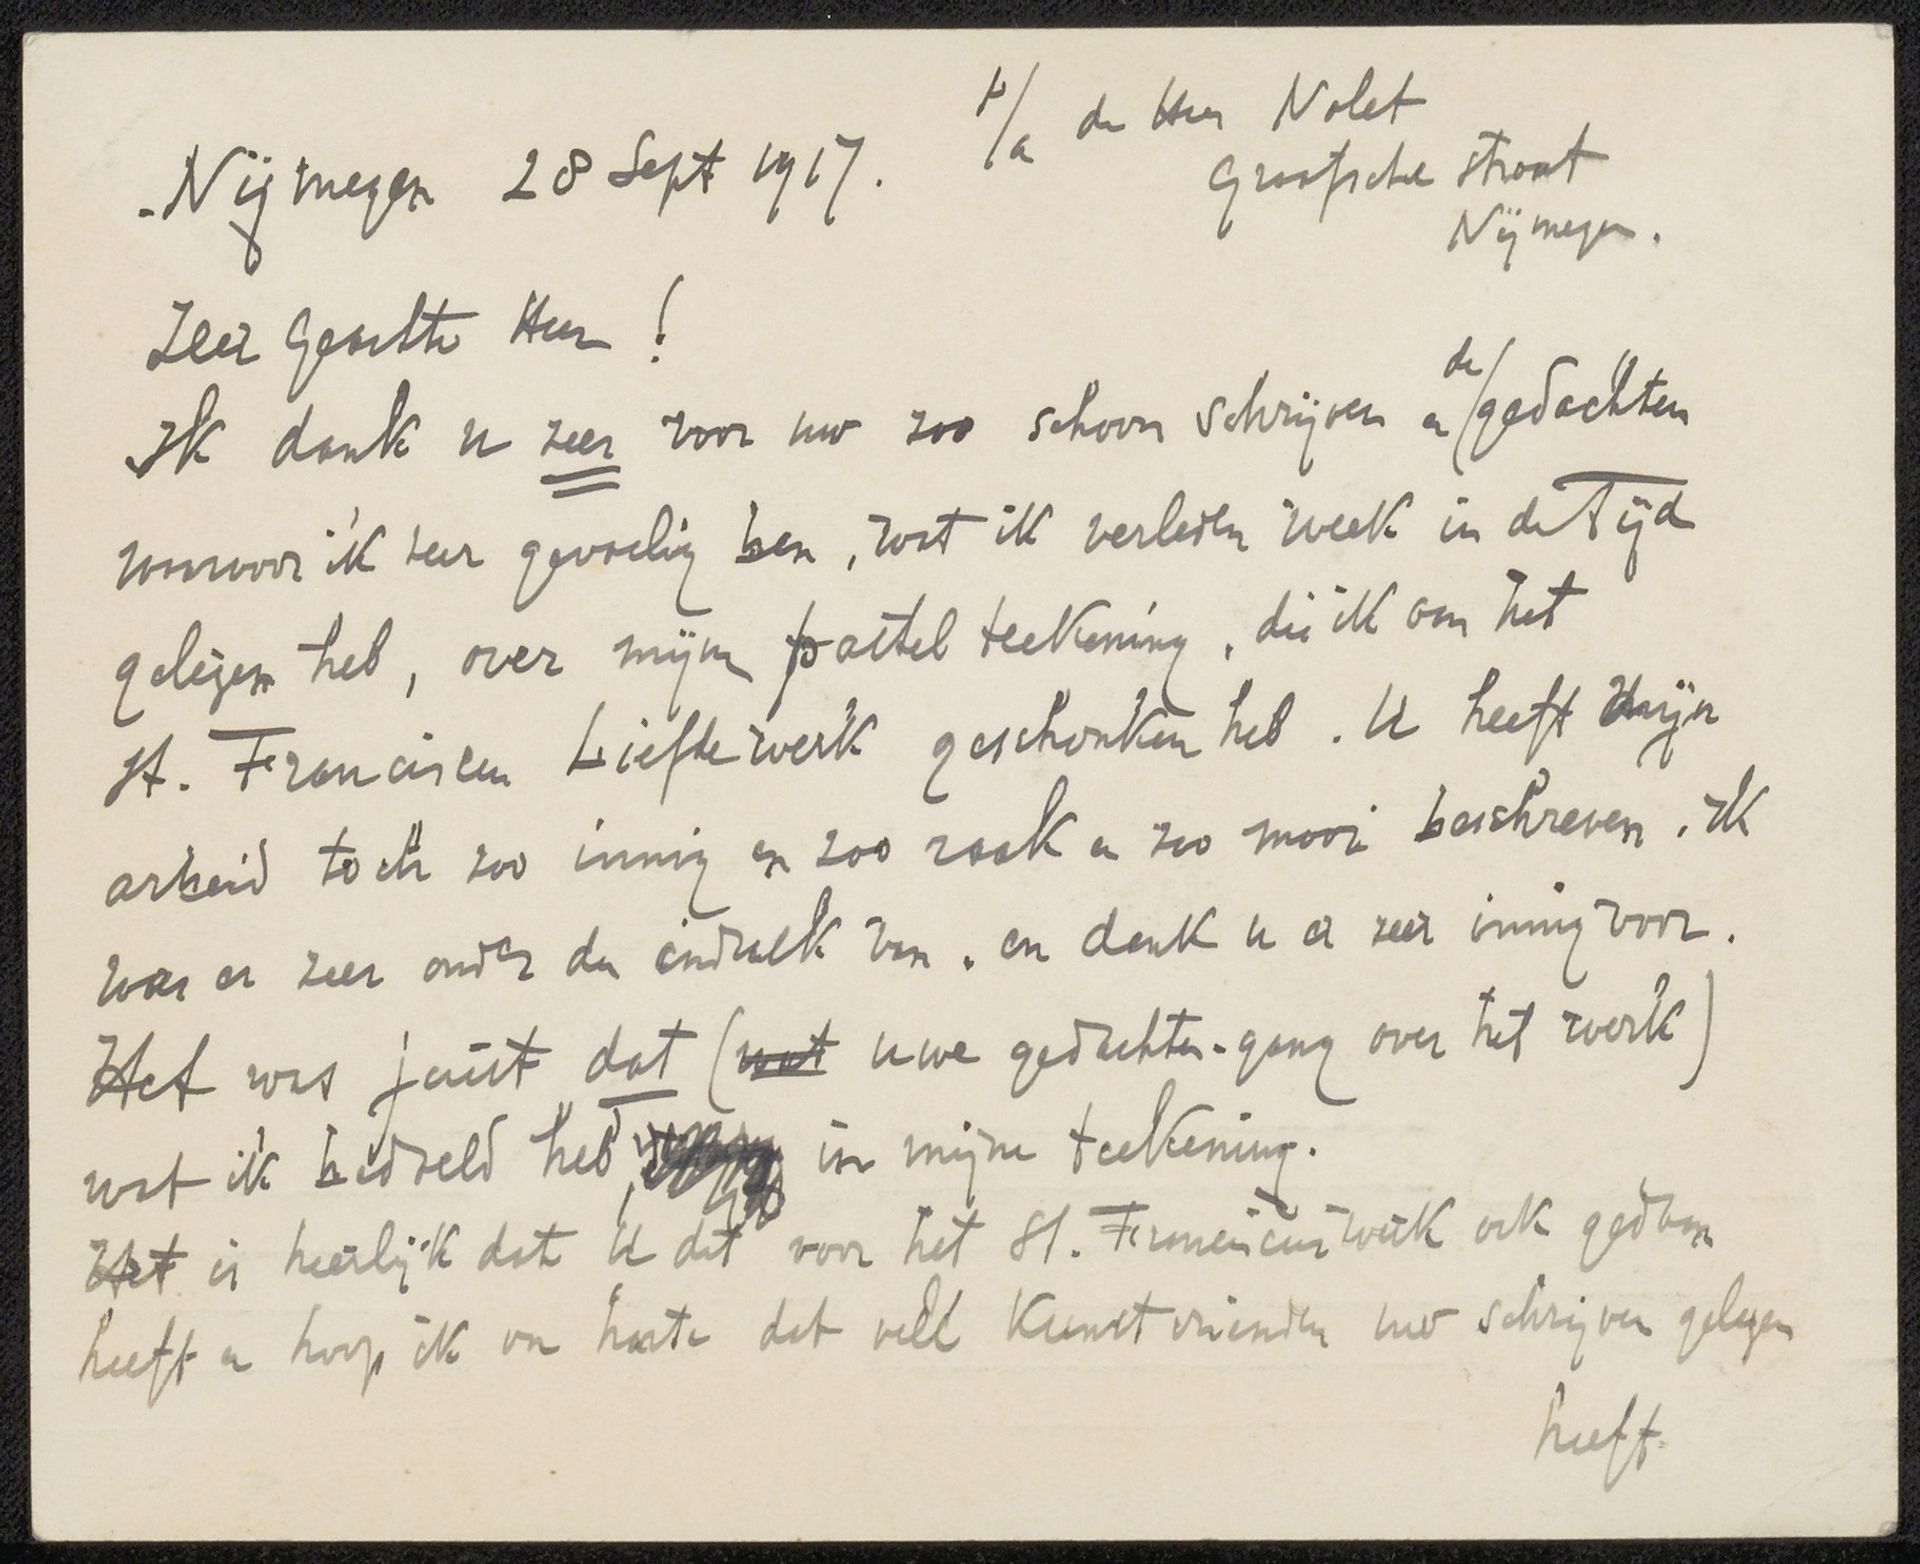 p/a de Heer Nolet
Nijmegen 28 Sept 1917.
Graafsche straat
Nijmegen.
Zeer Geachte Heer!
Ik dank u zeer voor uw zoo schoon schrijven en / de gedachten
waarvoor ik zeer gevoelig ben, wat ik verleden week in de Tijd
gelezen heb, over mijne pastel teekening, die ik aan het
St. Franciscus Liefdewerk geschonken heb. U heeft mijn
arbeid toch zoo innig en zoo raak en zoo mooi beschreven. Ik
was er zeer onder den indruk van. en dank u er zeer innig voor.
Het was juist dat (wat uwe gedachten-gang over het werk)
wat ik bedoeld heb, in mijne teekening.
Het is heerlijk dat U dit voor het St. Franciscuswerk ook gedaan
heeft en hoop ik van harte dat veel Kunstvrienden uw schrijven gelezen
heeft.